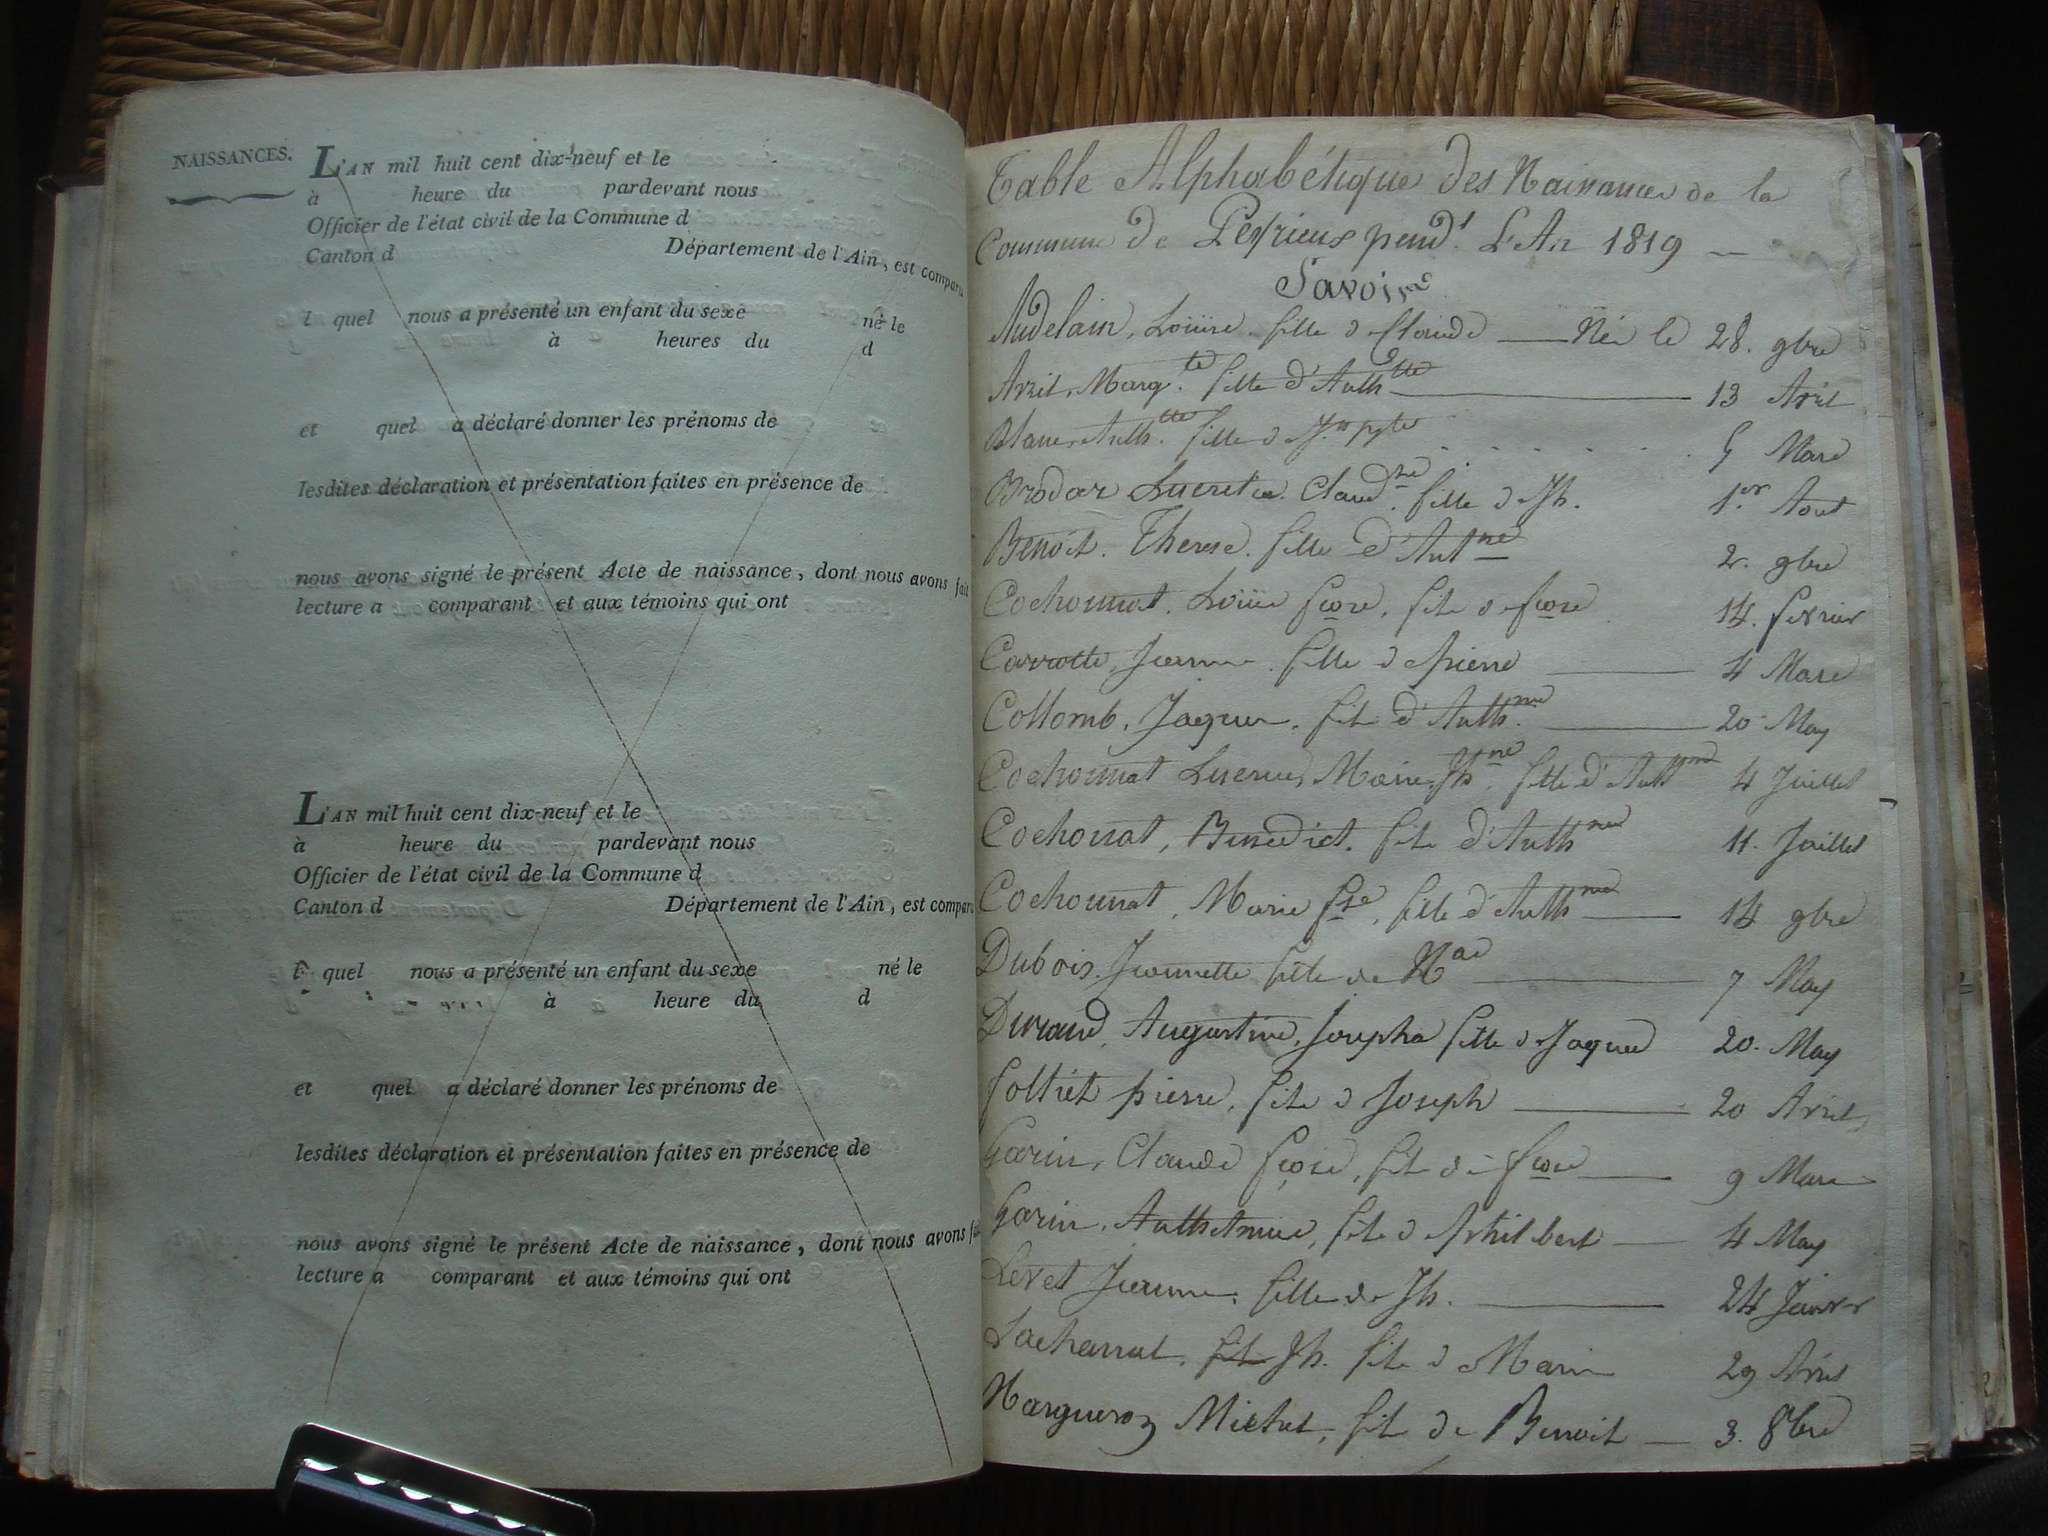 NAISSANCES.
L'AN mil huit cent dix-neuf et le
à heure du pardevant nous
Officier de l'état civil de la Commune d
Canton d Département de l'Ain, est comparu
l quel nous a présenté un enfant du sexe né le
à heures du d
et quel a déclaré donner les prénoms de
lesdites déclaration et présentation faites en présence de
nous avons signé le présent Acte de naissance, dont nous avons fait
lecture a comparant et aux témoins qui ont
L'AN mil huit cent dix-neuf et le
à heure du pardevant nous
Officier de l'état civil de la Commune d
Canton d Département de l'Ain, est compar
l quel nous a présenté un enfant du sexe né le
à heure du d
et quel a déclaré donner les prénoms de
lesdites déclaration et présentation faites en présence de
nous avons signé le présent Acte de naissance, dont nous avons
lecture a comparant et aux témoins qui ont
Table Alphabétique des Naissances de la
Commune de Peyrieux pend.t L'An 1819
Savoir
Audelain, Louise fille de Claude Née le 28. 9bre
Avril, Marg.te fille d'Anth.tte 13 Avril
Blanc, Anth.tte fille de 5 Mars
Brodar Lucrece Claud.ne fille de Jh. 1.er Aout
Benoit. Therese. fille d'Ant.ne 2. 9bre
Cochonat. Louis fçois, fils de fçois 14. fevrier
Carrotte, Jeanne fille de pierre 4 Mars
Collomb, Jaques, fils d'Anth.me 20 May
Cochonnat Marie Jh.ne, fille d'Anth.me 4 Juillet
Cochonat, Benedict. fils d'Anth.me 11. Juillet
Cochonnat, Marie fse, fille d'Anth.me 14 9bre
Dubois. Jeannette fille de 7 May
Durand, Augustine, Josepha fille de Jaques 20. May
pierre, fils de Joseph 20 Avril
Garin, Claude fçois, fils de fçois 9 Mars
Garin, Anthelmine, fils de philibert 4 May
Levet Jeanne, fille de Jh. 24 Janv.r
Lacharnat. Jh. fils de Marin 29 Avril
Margueron Michel, fils de Benoit 3. 8bre